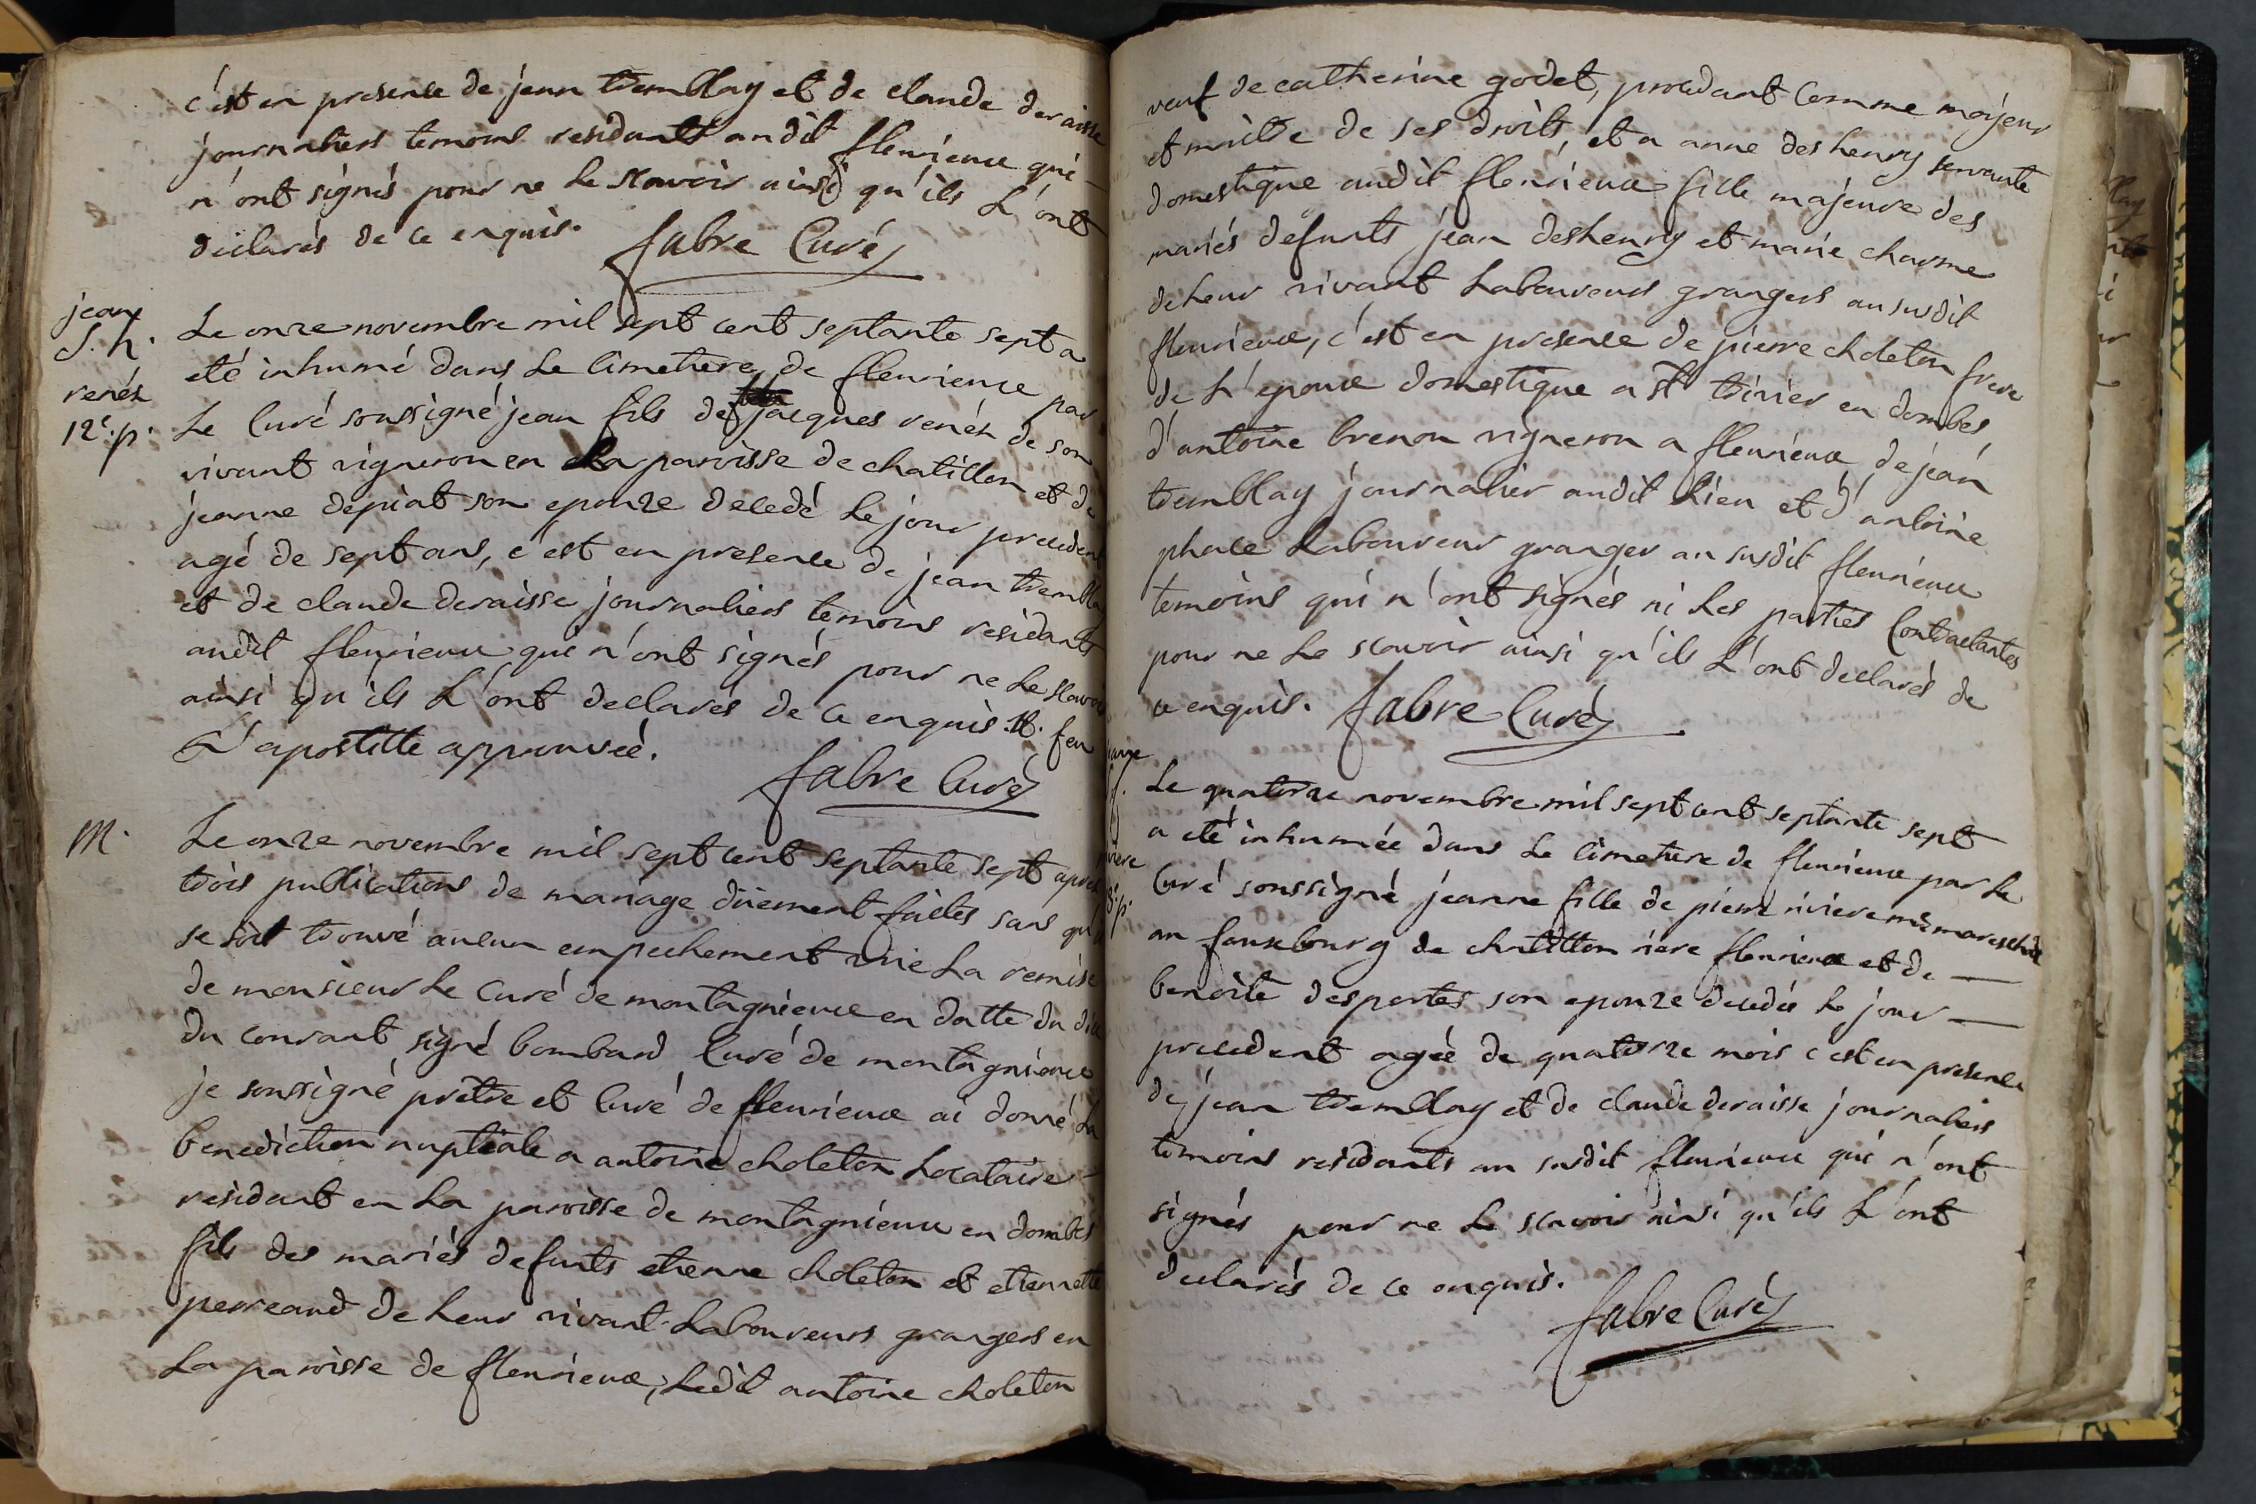 c'est en presence de jean tremblay et de claude deraisse
journaliers temoins residants audit fleurieux qui
n'ont signés pour ne le scavoir ainsi qu'ils L'ont
declarés de ce enquis. fabre Curé
jean
S. h.
renés
12e. p.
Le onze novembre mil sept cent septante sept a
eté inhumé dans Le Cimetiere de fleurieux par
Le Curé soussigné jean fils de jacques renés de son
vivant vigneron en La paroisse de chatillon et de
jeanne depiat son epouze decedé Le jour precedent
agé de sept ans, c'est en presence de jean trembla
et de claude deraisse journaliers temoins residants
audit fleurieux qui n'ont signés pour ne Le scavoir
ainsi qu'ils L'ont declarés de ce enquis. feu
L'apostille approuvée.
fabre Curé
M.
Le onze novembre mil sept cent septante sept après
trois publications de mariage düement faites sans qu'il
se soit trouvé aucun empechement vüe La remise
de monsieur Le Curé de montagnieux en datte du dix
du courant signé bombard Curé de montagnieux
je soussigné prêtre et Curé de fleurieux ai donné La
benediction nuptiale a antoine choleton Locataire
residant en La paroisse de montagnieux en dombes
fils des mariés defunts etienne choleton et etiennette
perreaud de Leur vivant Laboureurs grangers en
La paroisse de fleurieux, Ledit antoine choleton
veuf de catherine godet, procedant Comme majeur
et maitre de ses droits, et a anne deshenry servante
domestique audit fleurieux fille majeure des
mariés defunts jean deshenry et marie charme
de Leur vivant Laboureurs grangers au susdit
fleurieux, c'est en presence de pierre choleton frere
de L'epoux domestique a st trivier en dombes,
d'antoine brenon vigneron a fleurieux, de jean
tremblay journalier audit Lieu et d'antoine
phale Laboureur granger au susdit fleurieux
temoins qui n'ont signés ni Les parties Contractantes
pour ne Le scavoir ainsi qu'ils L'ont declarés de
ce enquis. fabre Curé
Le quatorze novembre mil sept cent septante sept
a eté inhumée dans Le Cimetiere de fleurieux par Le
Curé soussigné jeanne fille de pierre riviere me marechal
au fauxbourg de chatillon riere fleurieux et de
benoite desportes son epouze decedée Le jour
precedent agée de quatorze mois c'est en presence
de jean tremblay et de claude deraisse journaliers
temoins residants au susdit fleurieux qui n'ont
signés pour ne Le scavoir ainsi qu'ils L'ont
declarés de ce enquis.
fabre Curé